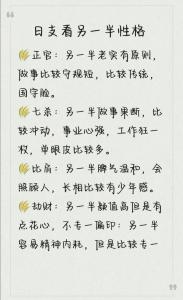 日支看另一半性格
正官：另一半老实有原则，
做事比较守规矩，比较传统，
国字脸。
七杀：另一半做事果断，比
较冲动，事业心强，工作狂一
枚，单眼皮比较多。
比肩：另一半脾气温和，会
照顾人，长相比较有少年感。
劫财：另一半颜值高但是有
点花心，不专一偏印：另一半
容易精神内耗，但是比较专一